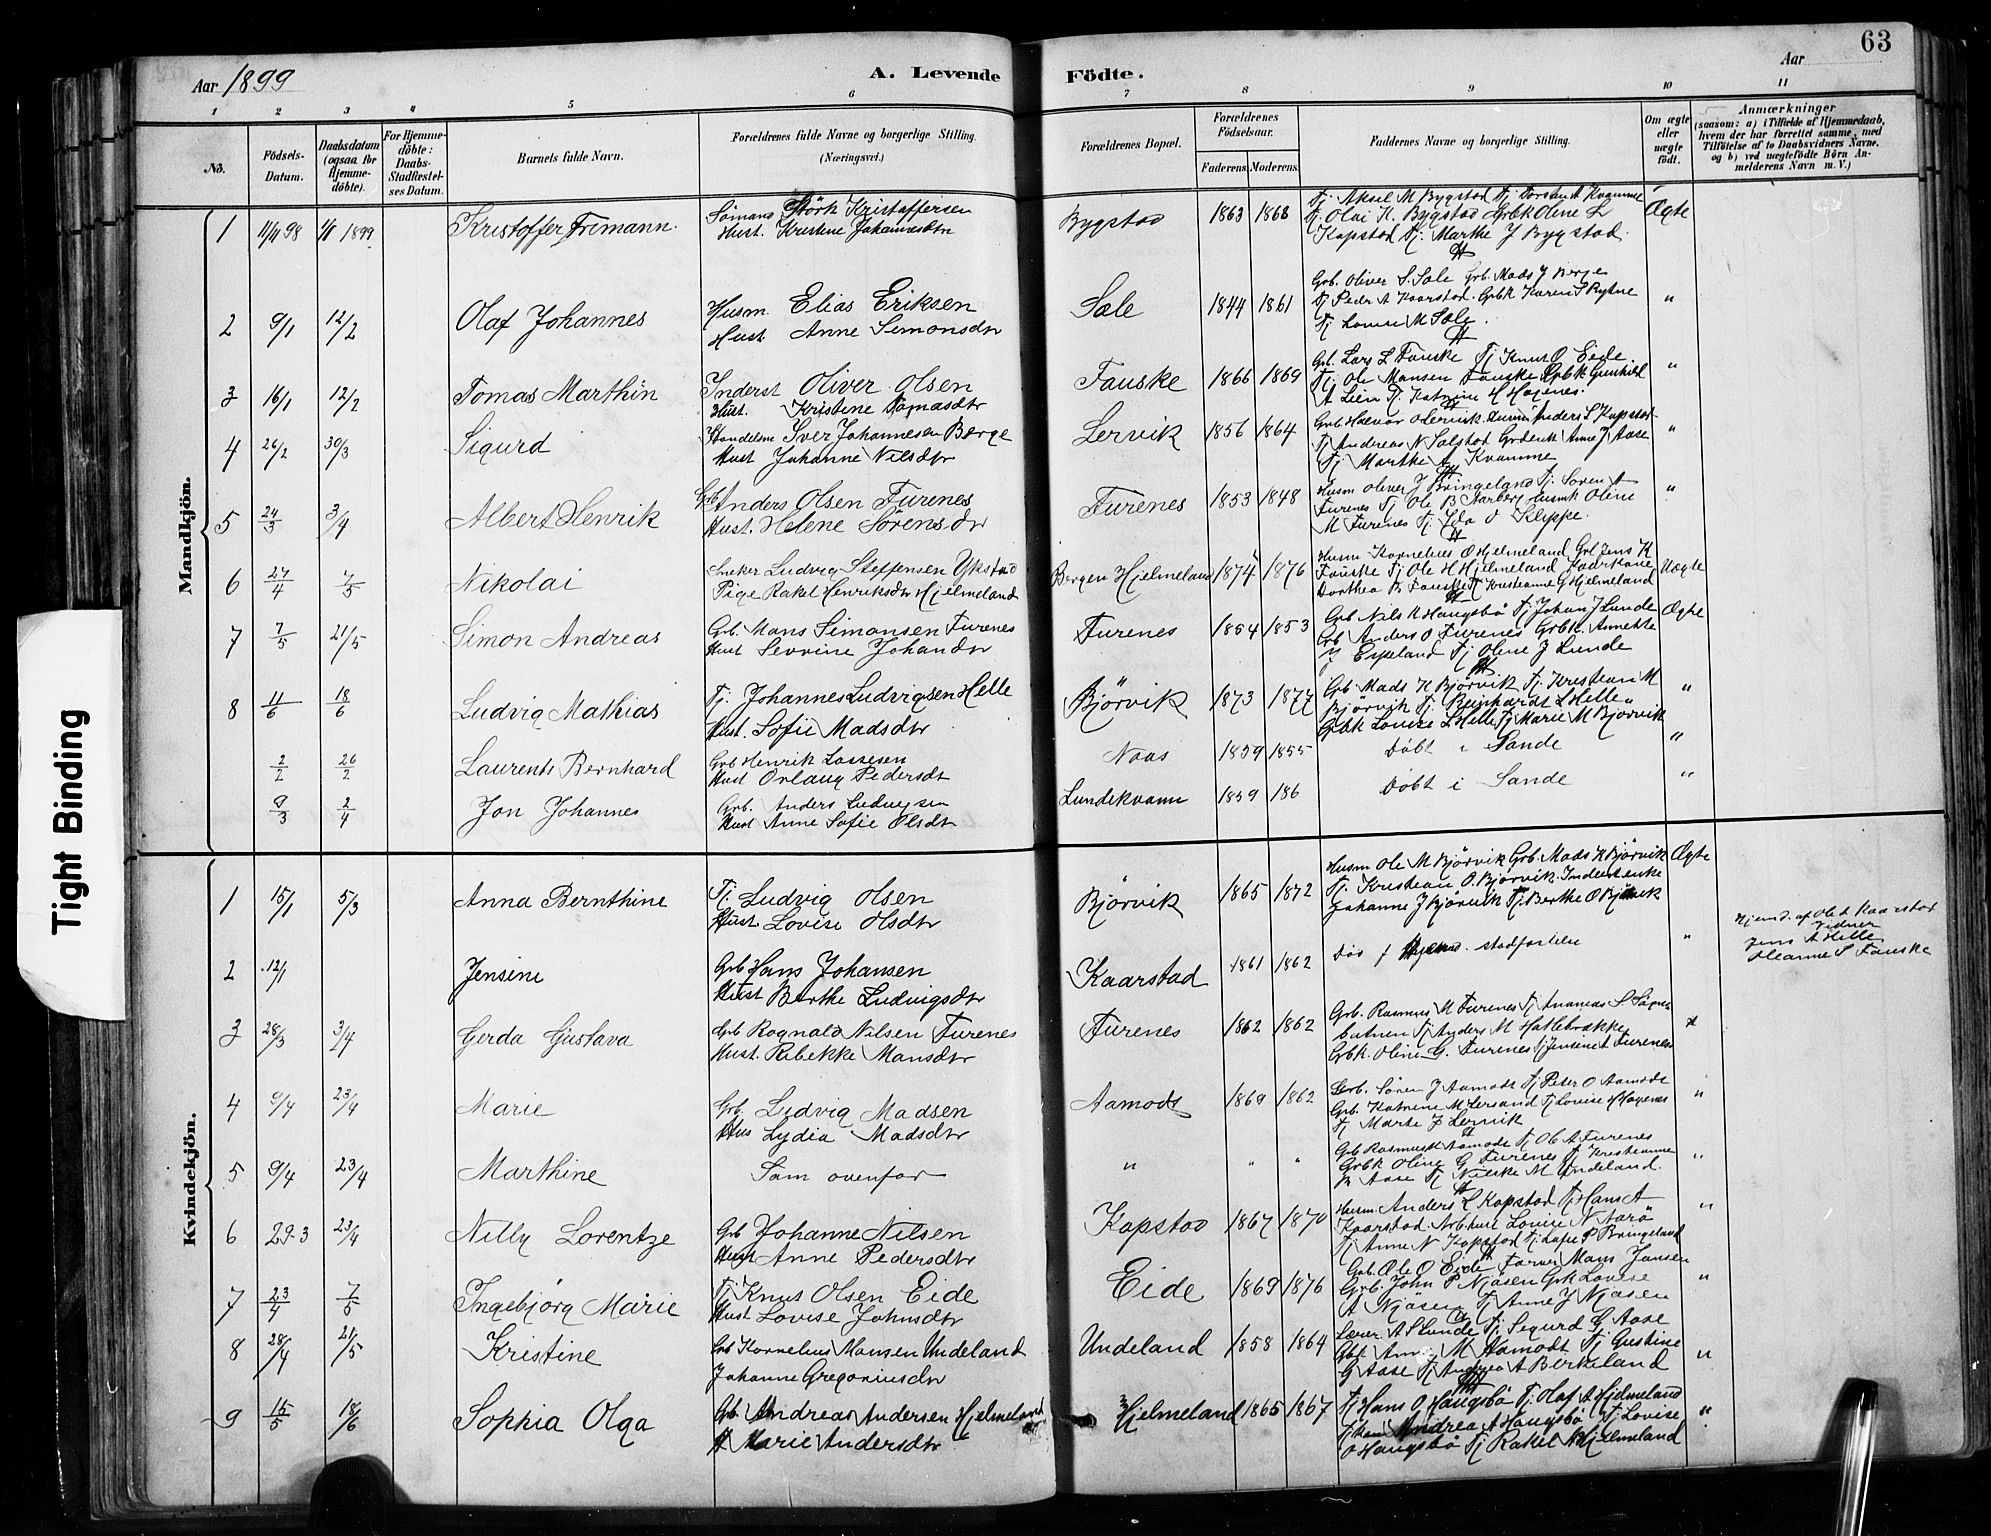 63
Aar 1899
A. Levende Födte.
Aar
1 2 3 4 5 6 7 8 9 10 11
No.
Födsels-Datum.
Daabsdatum (ogsaa for Hjemmedöbte).
For Hjemmedöbte: Daabs-Stadfæstelses Datum.
Barnets fulde Navn.
Forældrenes fulde Navne og borgerlige Stilling. (Næringsvei.)
Forældrenes Bopæl.
Forældrenes Födselsaar.
Faderens. Moderens.
Faddernes Navne og borgerlige Stilling.
Om ægte eller uægte födt.
Anmærkninger (saasom: a) i Tilfælde af Hjemmedaab, hvem der har forrettet samme, med Tilföielse af to Daabsvidners Navne. og b) ved uægtefödte Börn Anmelderens Navn m. V.)
Mandkjön.
1 11/11 98 1/1 1899 Kristoffer Fremann. Sømans Størk Kristoffersen
Hust. Kristine Johannesdtr
Bygstad 1863 1868 Tj. Aksel M Bygstad Tj Torsten A Kvamme
Tj. Olai K. Bygstad Grbk Oline L
Kopstad Tj. Marthe J Bygstad.
Ægte
2 9/1 12/2 Olaf Johannes Husm. Elias Eriksen
Hust. Anne Simonsdtr
Sæle 1844 1861 Grb. Oliver S. Sæle Grb. Mads J Berge
Tj Peder A Kaarstad. Grbk Karen S Rytne
Tj Lovise M Sæle.
"
3 16/1 12/2 Tomas Marthin Inderst Oliver Olsen
Hust. Kristine Tomasdtr
Fauske 1866 1869 Grb Lars L Fauske Tj Knut O Eide
Tj. Ole Monsen Fauske Grbk Gunhild
A Lien Tj Katrine H Høyenes
"
4 26/2 30/3 Sigurd Handelsm Iver Johannesen Berge
Hust Johanne Nilsdtr
Lervik 1856 1864 Grb Halvor O Lervik Husm Anders L Kopstad
Tj Andreas N Solstad Grdenk Anne J Aase
Tj Marthe A Kvamme
"
5 24/3 3/4 Albert Henrik Grb Anders Olsen Furenes
Hust. Helene Sørensdtr
Furenes 1853 1848 Husm Oliver J Bringeland Tj. Søren A
Furenes Tj Ole B Aarberg Husmk Oline
M Furenes Tj. Ida O Klippe.
"
6 27/4 7/5 Nikolai Sneker Ludvig Steffensen Ykstad
Pige Rakel Henriksdtr Hjelmeland
Bergen Hjelmeland 1874 1876 Husm Kornelius O Hjelmeland Grb Jens K
Fauske Tj Ole H Hjelmeland Gaardkone
Dorthea B Fauske Tj Kristianne G Hjelmeland
Uægte
7 7/5 21/5 Simon Andreas Grb. Mons Simonsen Furenes
Hust Sevrine Johandtr
Furenes 1854 1853 Grb Nils K Haugsbø Tj Johan J Lunde
Grb Anders O Furenes Grbk. Annette
J Espeland Tj Oline J Lunde
Ægte
8 11/6 18/6 Ludvig Mathias Tj. Johannes Ludvigsen Helle
Hust. Sofie Madsdtr
Bjørvik 1873 1877 Grb Mads K Bjørvik Tj. Kristian M
Bjørvik Tj Reinhardt L Helle
Grbk Lovise L Helle Tj Marie M Bjørvik
"
2/2 26/2 Laurents Bernhard Grb Henrik Lassesen
Hust Orlaug Pedersdt
Naas 1859 1855 Døbt i Sande
"
9/3 2/4 Jon Johannes Grb. Anders Ludvigsen
Hust Anne Sofie Olsdtr
Lundekvam 1859 186 Døbt i Sande
"
Kvindekjön.
1 15/1 5/3 Anna Bernthine Tj Ludvig Olsen
Hust Lovise Olsdtr
Bjørvik 1865 1872 Husm Ole M Bjørvik Grb. Mads K Bjørvik
Tj. Kristian O. Bjørvik. Inderstenke
Johanne J Bjørvik Tj. Berthe O Bjørvik
Ægte
2 12/1 Jensine Grb Hans Johansen
Hust Berthe Ludvigsdtr
Kaarstad 1861 1862 Død f Hjemd. stadfæstelse
"
Hjemd. af Ole A Kaarstad
Vidner
Jens A Helle
Oleanne S Fauske
3 28/3 3/4 Gerda Gustava Grb Rognald Nilsen Furenes
Hust. Ribekke Monsdtr
Furenes 1862 1862 Grb. Rasmus M Furenes Tj Ananias S Sögne
Tj Anders M Hatlebrække
Grbk. Oline G. Furenes Tj Jensine A Furenes
4 9/4 23/4 Marie Grb. Ludvig Madsen
Hus Lydia Madsdtr
Aamodt 1869 1862 Grb. Søren J Aamodt Tj Peter O Aamodt
Grb. Katrine M Lersand Tj Lovise H Høyenes
Tj Marte J Lervik
"
5 9/4 23/4 Marthine Som ovenfor
" " " Grb Rasmus K Aamodt Tj Ole A Furenes
Grbk Oline G Furenes Tj Kristianne
B Aase Tj Nilske M Undeland.
"
6 29-3 23/4 Nilly Lorentze Grb Johanne Nilsen
Hust Anne Pedersdtr
Kopstad 1867 1870 Husm Anders L Kopstad Tj Hans A
Kaarstad. Arb.hus. Lovise N Aarø
Tj Anne N Kopstad Tj. Sofie P Bringeland
"
7 23/4 7/5 Ingebjørg Marie Tj Knut Olsen Eide
Hust Lovise Johnsdtr
Eide 1869 1876 Grb. Ole O Eide Farver Mons Jansen
Grb. John P Njøsen Grbk Lovise
A Njøsen Tj Anne J Njøsen
"
8 28/4 21/5 Kristine Grb Kornelius Monsen Undeland
Johanne Gregoriusdtr
Undeland 1858 1864 Lærer A S Lunde Tj. Sigurd G Aase
Grbk Anna M Aamodt Tj Gustine
G Aase Tj Andrea A Berkeland
"
9 15/5 18/6 Sophia Olga Grb Andreas Andersen Hjelmeland
H Marie Andersdtr
Hjelmeland 1865 1867 Tj Hans O Haugsbø Tj. Olaf A Hjelmeland
Andrea A Haugsbø Tj. Lovise
O Haugsbø Tj Rakel A Hjelmeland
"
Tight Binding